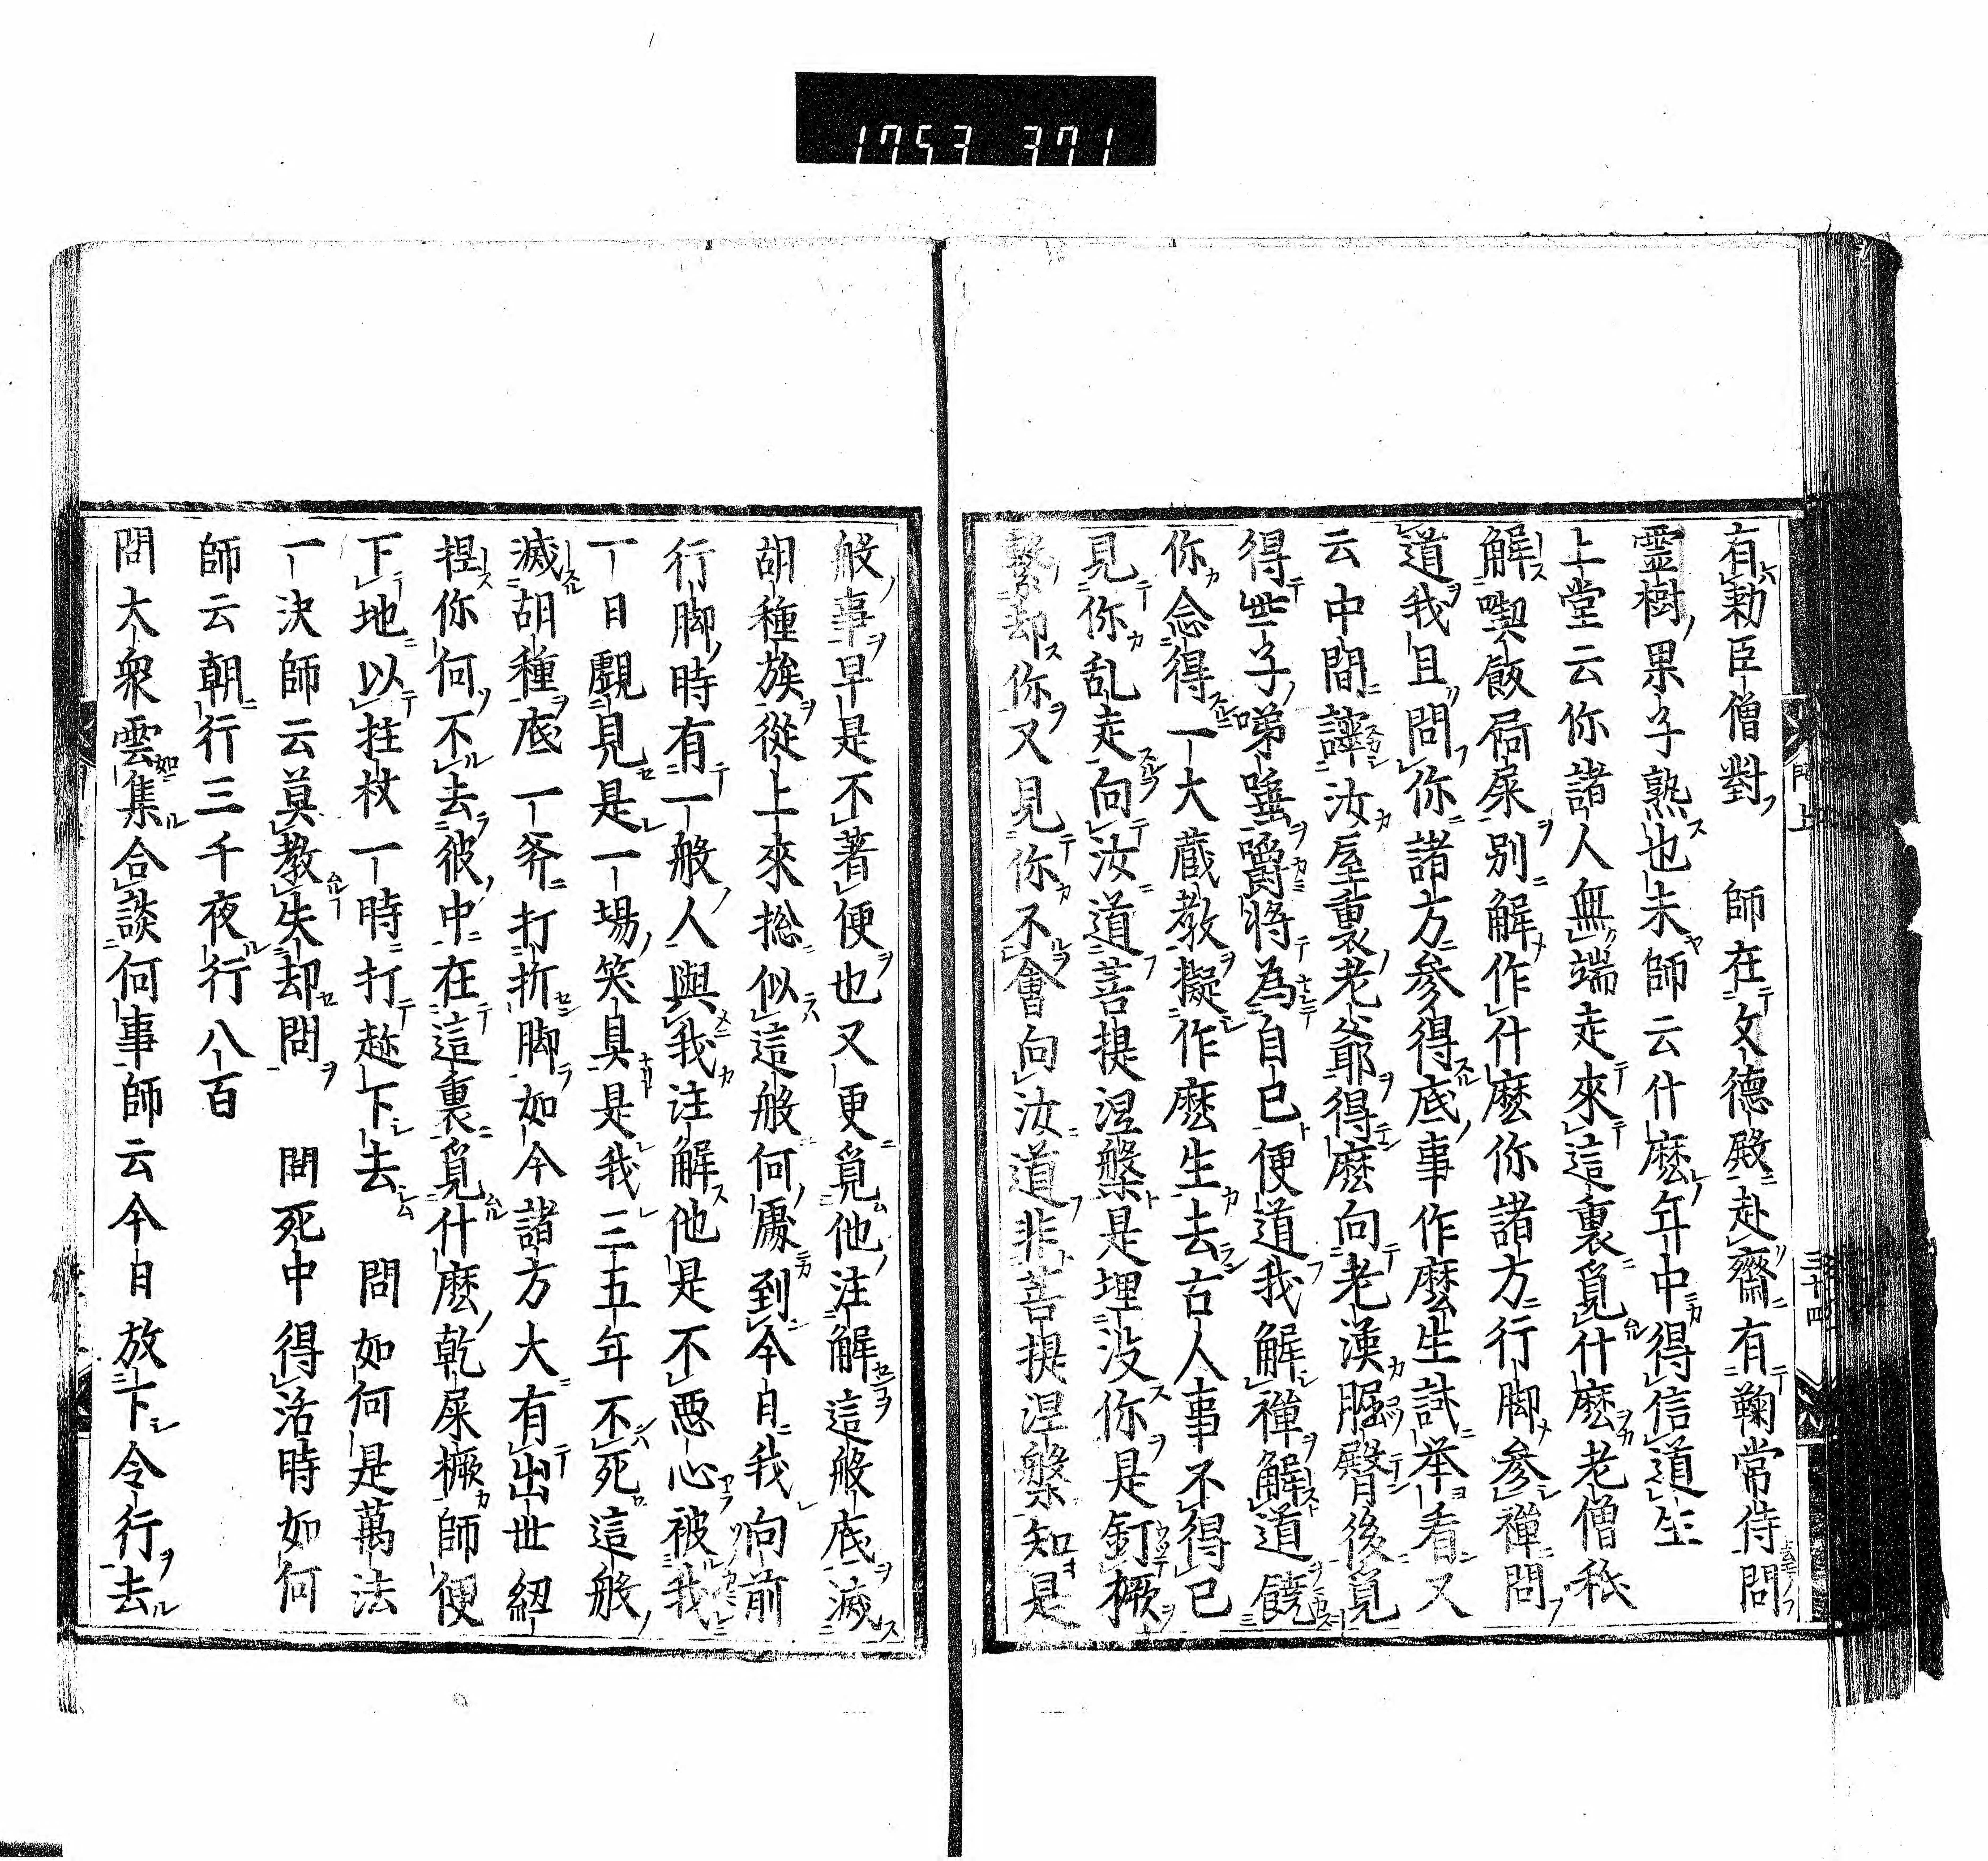 1753 371
有勅臣僧對 師在文德殿赴齋有鞠常侍問
霊樹果子熟也未師云什麼年中得信道生
上堂云你諸人無端走來這裏覓什麼老僧秖
解喫飯屙屎別解作什麼你諸方行脚參禪問
道我且問你諸方參得底事作麼生試举看又
云中間謼汝屋裏老爺耶得麼向老漢臋後覓
得些子嚏唾嚼將為自已便道我解禪解道饒
你念得一大蔵教擬作麼生去古人事不得已
見你乱走向汝道菩提涅槃是埋没你是釘橛
繫却你又見你不會向汝道非菩提涅槃知是
般事早是不著便也又更覓他注解這般底滅
胡種族從上來捴似這般何處到今自我向前
行脚時有一般人與我注解他是不惡心被我
一日覰見是一場笑具是我三五年不死這般
滅胡種底一斧打折脚如今諸方大有出世紐
揑你何不去彼中在這裏覓什麼乾屎橛師便
下地以拄杖一時打趂下去 問如何是萬法
一決師云莫教失却問 問死中得活時如何
師云朝行三千夜行八百
問大衆雲集合談何事師云今日放下令行去
門上
三十四